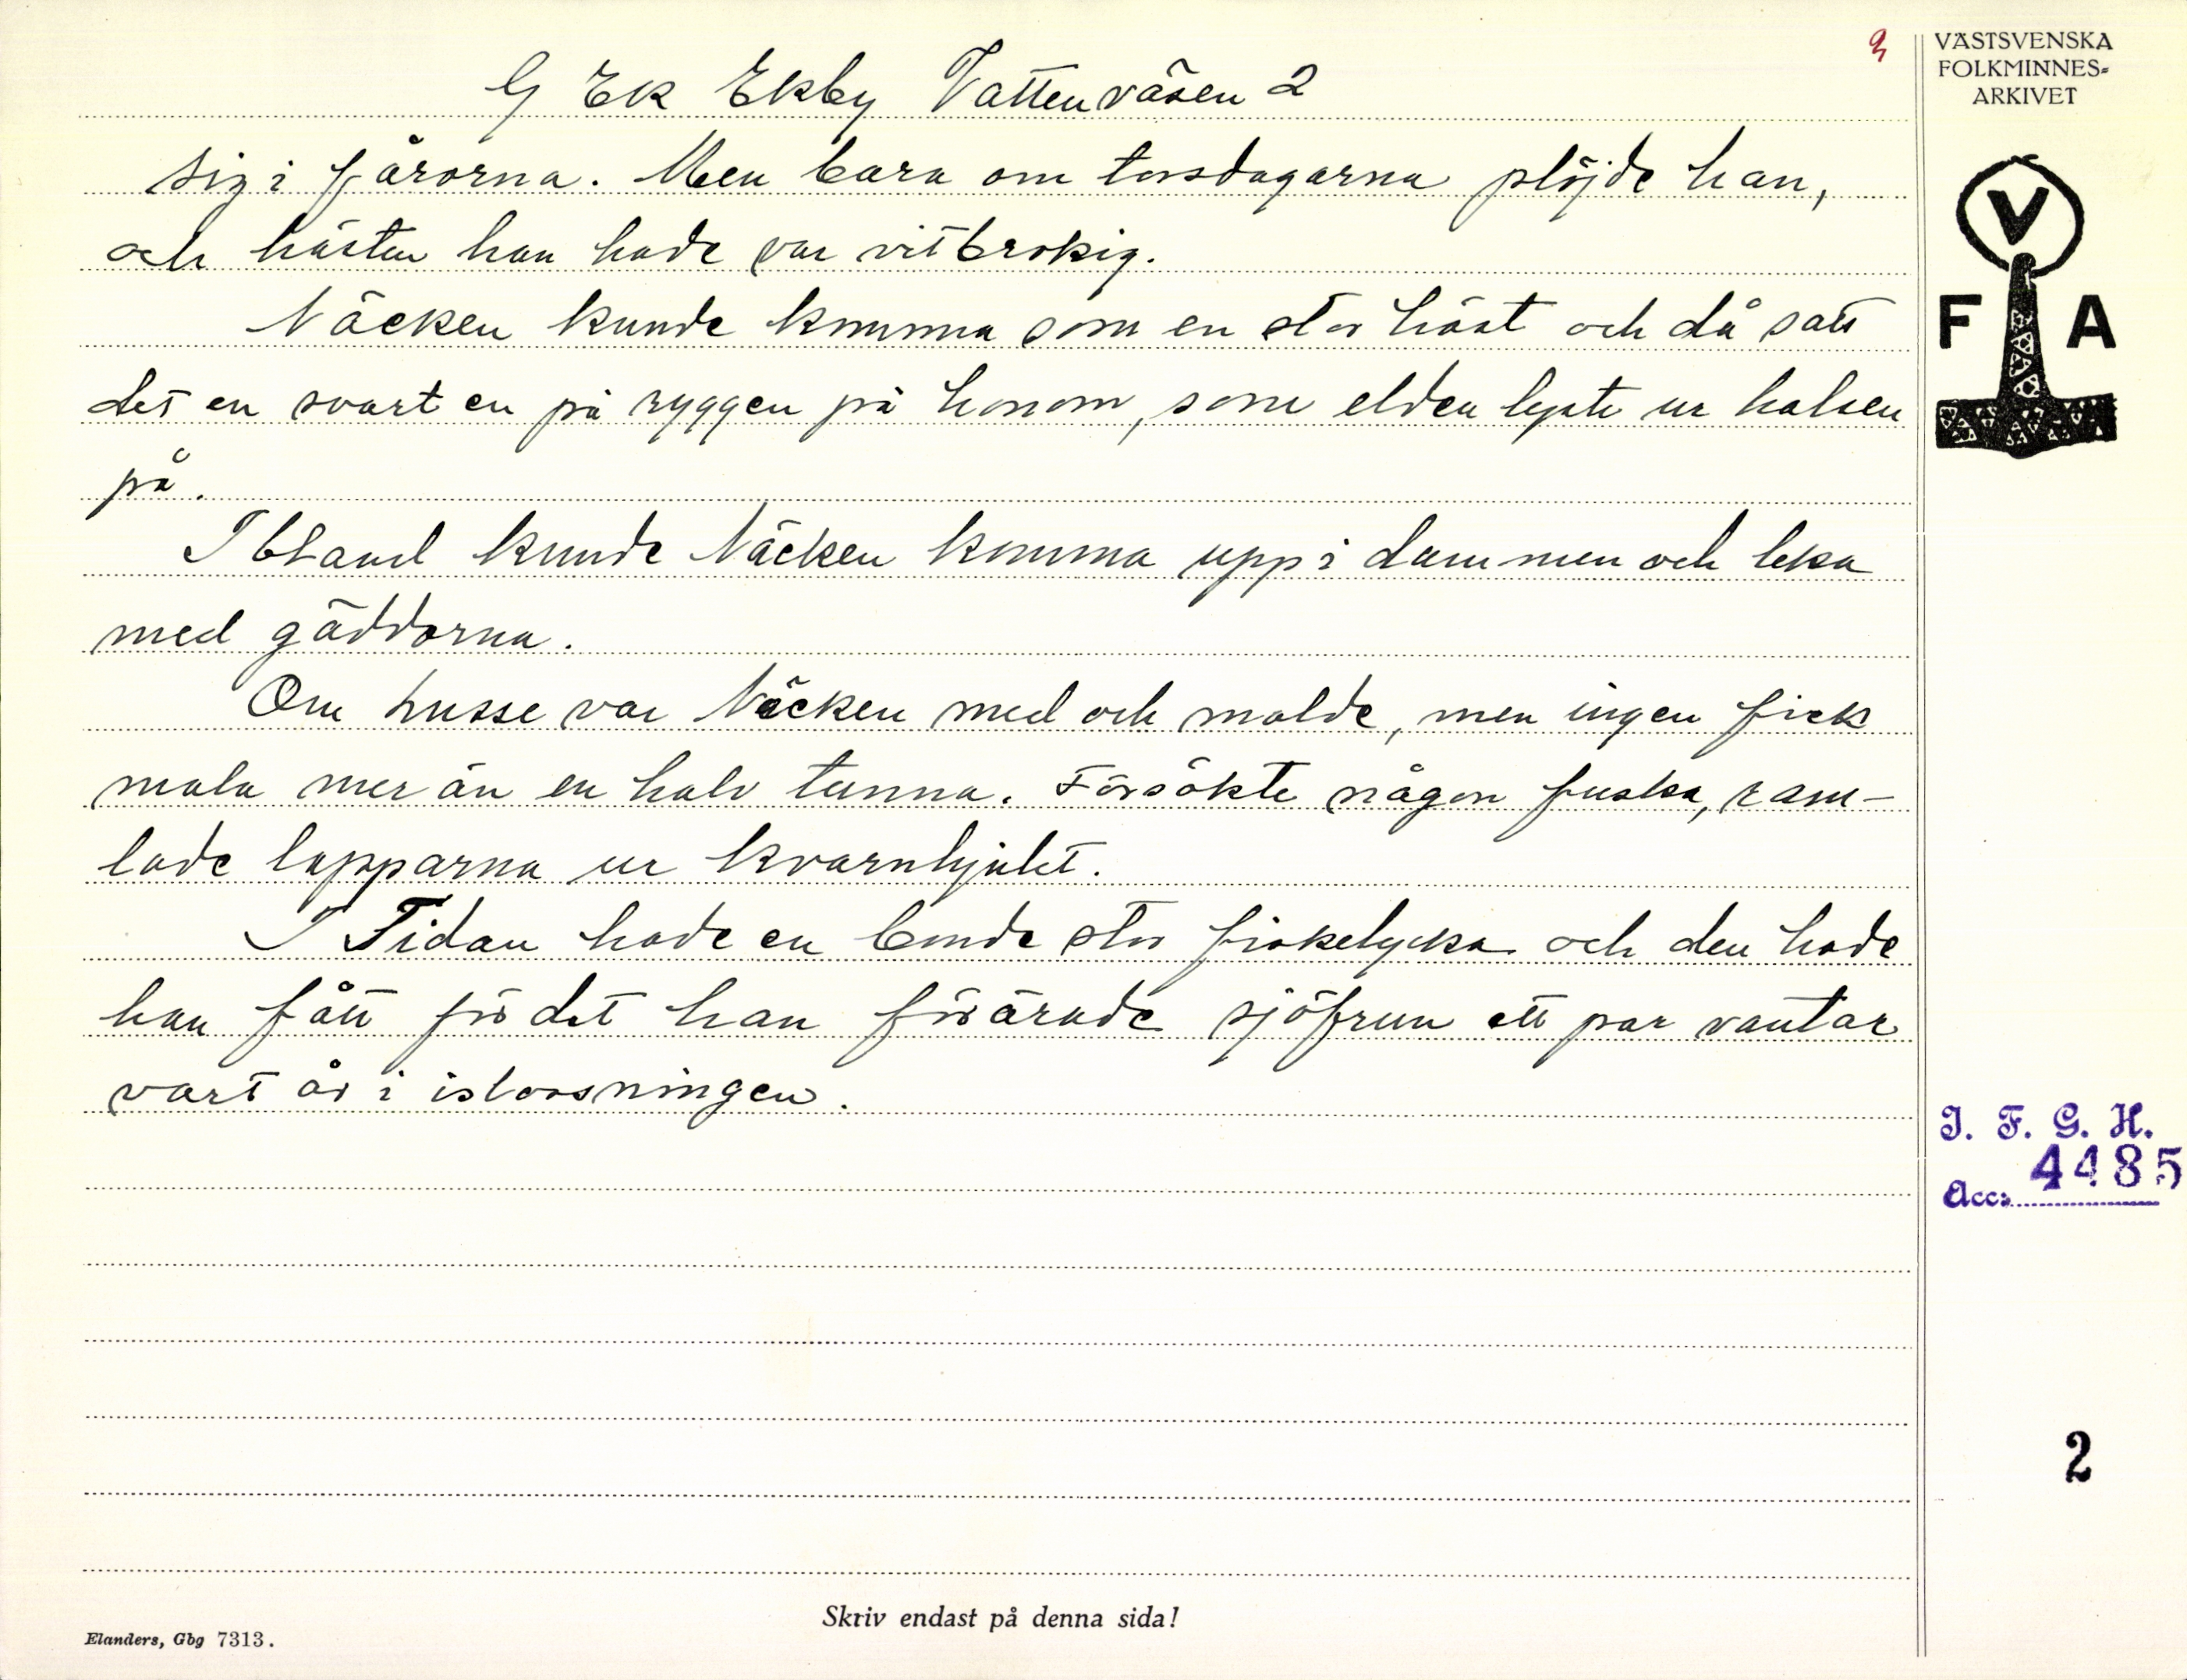 G Ek Ekby Vattenväsen 2
sig i fårorna. Men bara om torsdagarna plöjde han,
och hästen han hade var vitbrokig.
Näcken kunde komma som en stor häst och då satt
det en svart en på ryggen på honom, som elden lyste ur halsen
på.
Ibland kunde Näcken komma upp i dammen och leka
med gäddorna.
Om Lusse var Näcken med och malde, men ingen fick
mala mer än en halv tunna. Försökte någon fuska, ram-
lade lapparna ur kvarnhjulet.
I Tidan hade en bonde stor fiskelycka och den hade
han fått för det han förärade sjöfrun ett par vantar
vart år i islossningen.
VÄSTSVENSKA
FOLKMINNES-
ARKIVET
V
F A
I. F. G. H.
Acc: 4485
2
Skriv endast på denna sida!
Elanders, Gbg 7313.